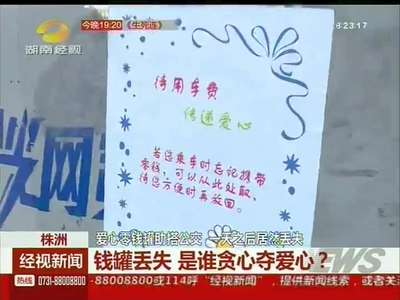 湖南经视
今晚19:20
8:23:17
待用车费
传递爱心
若您乘车时忘记携带
零钱，可以从此处取，
待您方便时再放回。
株洲
爱心零钱罐助搭公交
天之后居然丢失
经视新闻
钱罐丢失 是谁贪心夺爱心？
NEWS
热线
0731-88008800
"经视新闻"，提供新闻线索